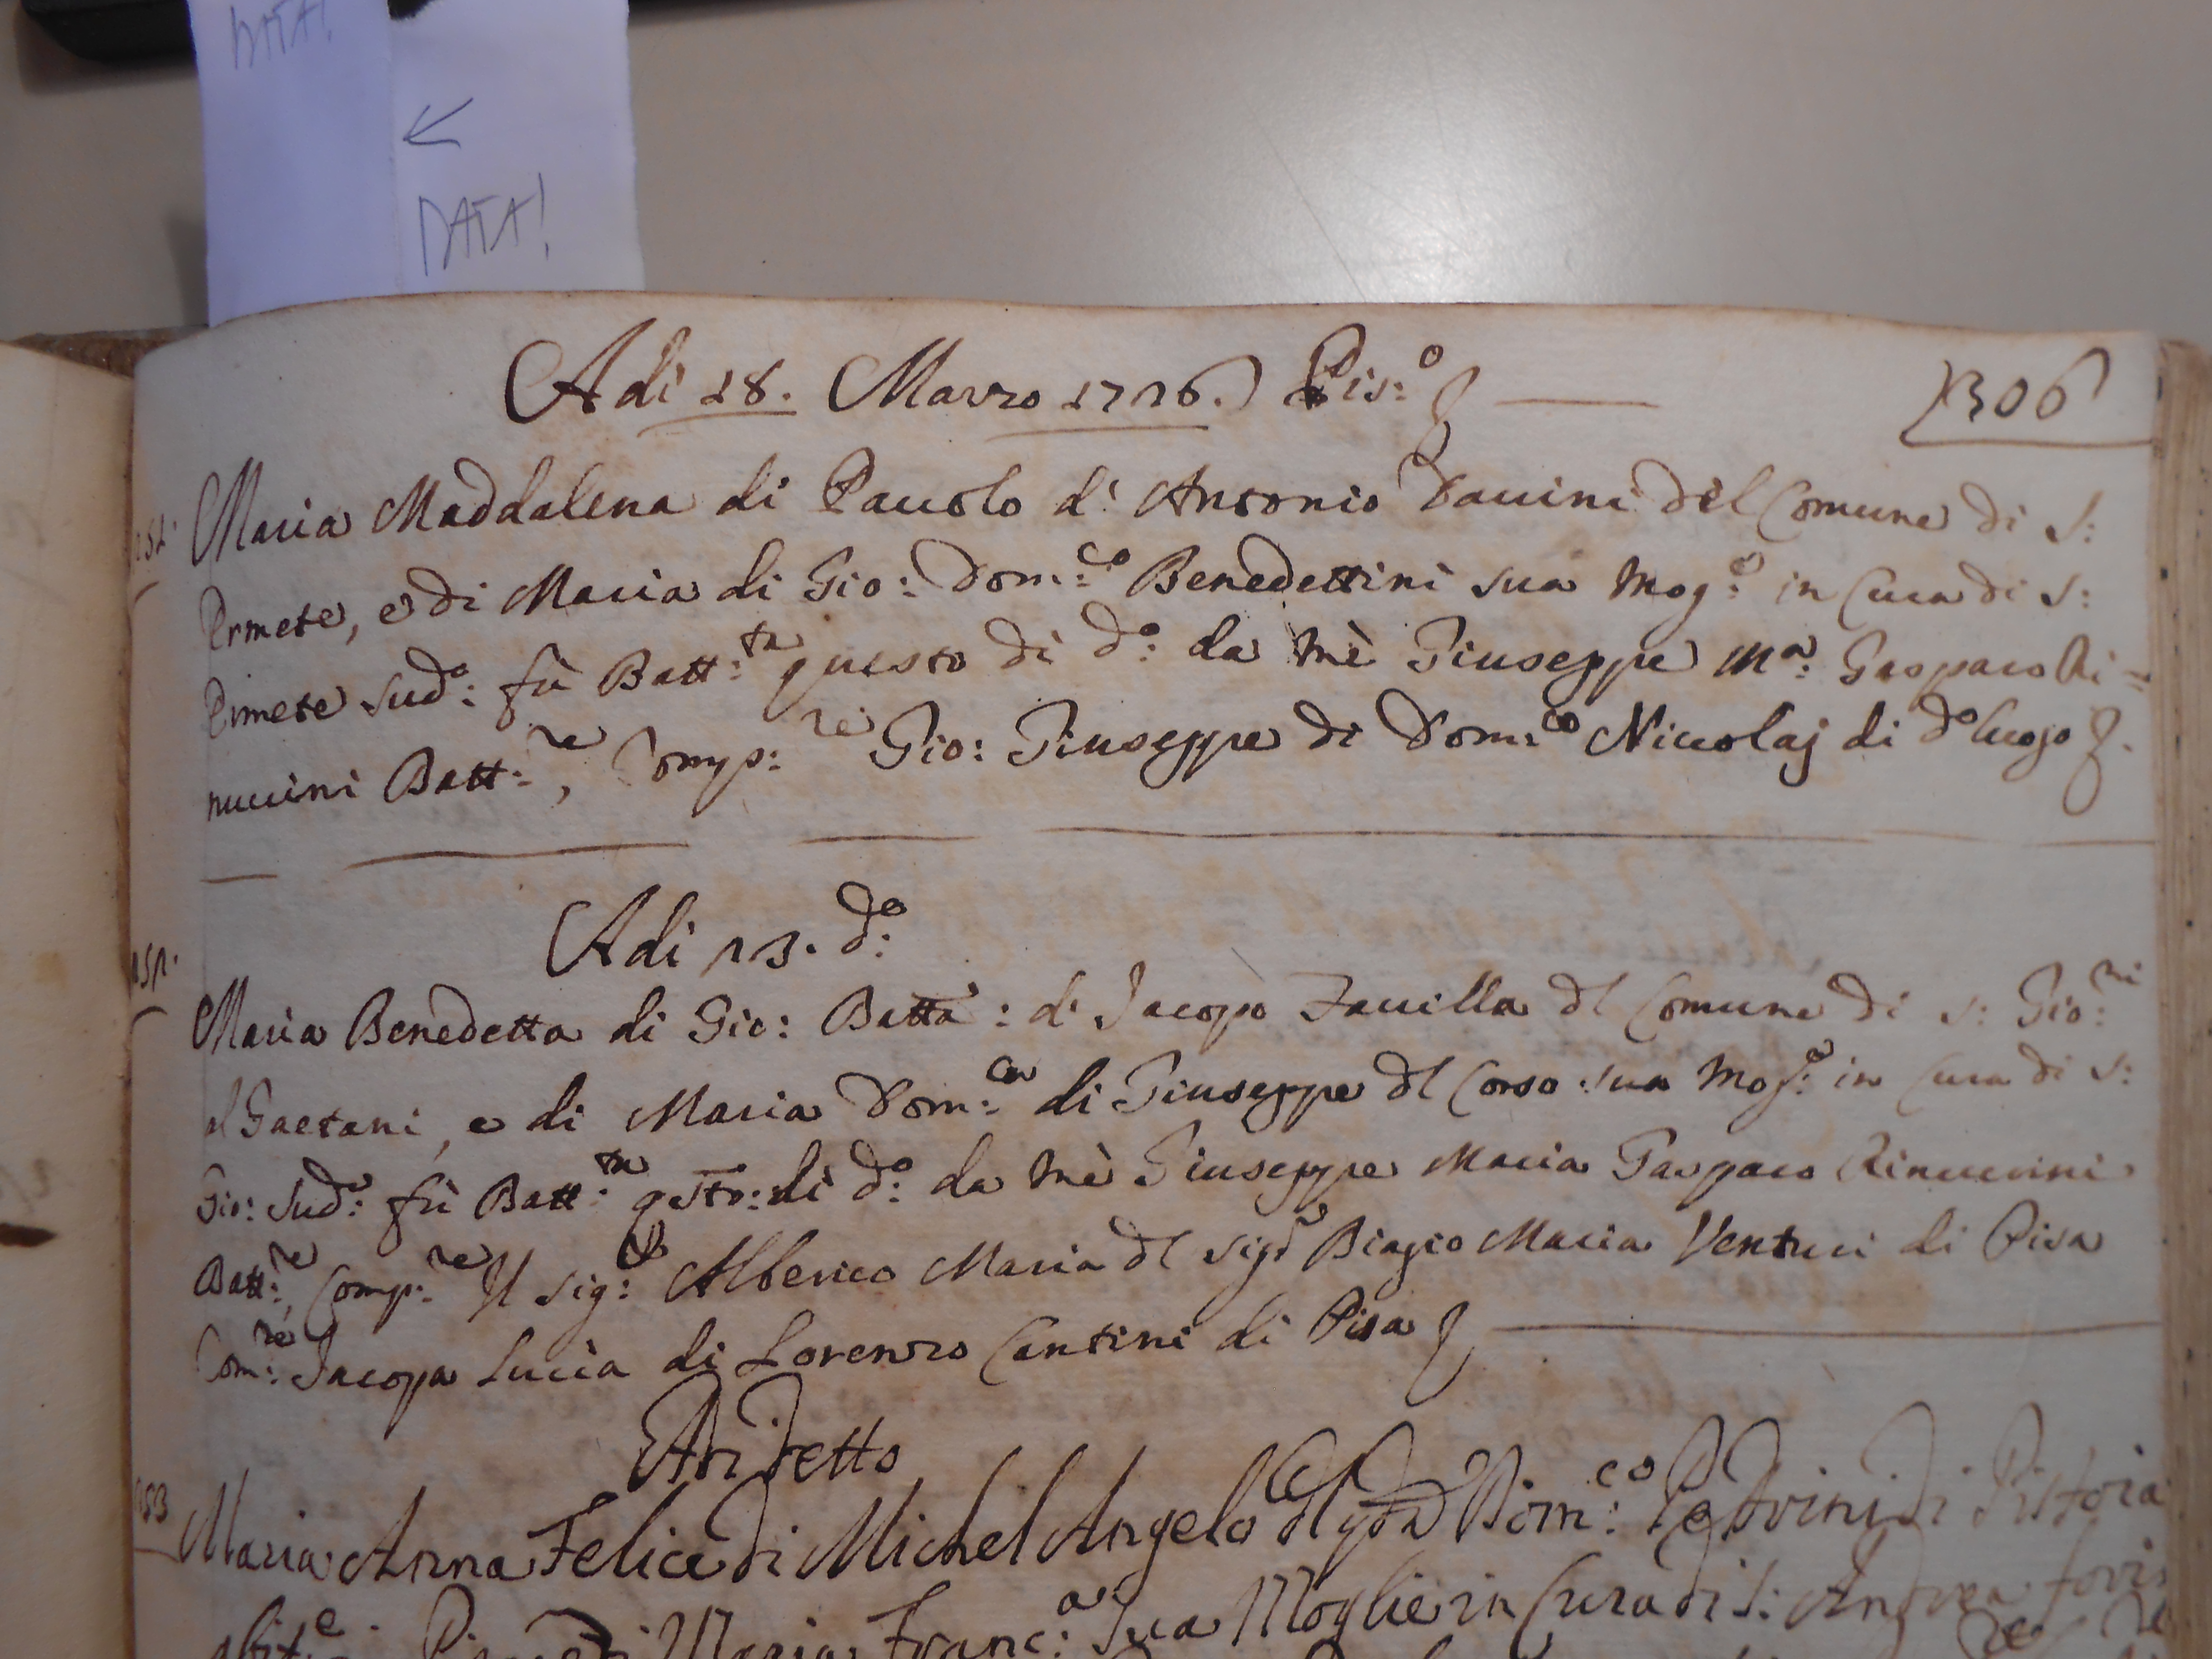 DATA!
←
DATA!
Adi 28. Marzo 1726. Pis:º
306
Maria Maddalena di Pauolo d' Antonio Vauini del Comune di S:
Ermete, e di Maria di Gio: Dom:co Benedettini sua Mog:e in Cura di S:
Ermete sud:o fù Batt:ta questo dì d:o da mè Giuseppe M:a Gasparo Ri=
nuccini Batt:re, Comp:re Gio: Giuseppe di Dom:co Niccolaj di d:o luogo
Adi 23. d:o
Maria Benedetta di Gio: Batta: di Jacopo Fauilla dl Comune di S: Gio:ni
al Gaetani, e di Maria Dom:ca di Giuseppe dl Corso sua Mog:e in Cura di S:
Gio: sud:o fù Batt:ta qsto: dì d:o da mè Giuseppe Maria Gasparo Rinuccini
Batt:re, Comp:re Il Sig:r Alberico Maria dl Sig:r Biagio Maria Venturi di Pisa
Com:re Jacopa Lucia di Lorenzo Cantini di Pisa
A di detto
253 Maria Anna Felice di Michel Angelo Dom:co Petrini di Pistoia
Maria Franc:a Sua Moglie in Cura di S: Andrea